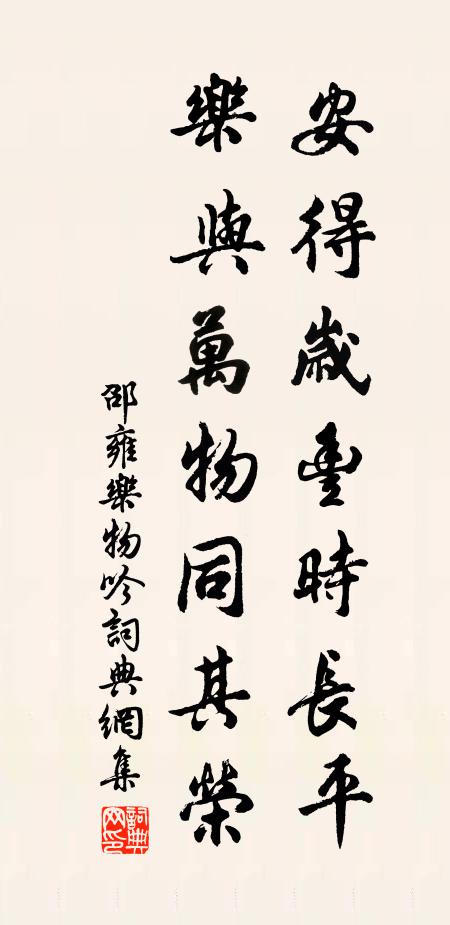 安得歲豐時長平
樂與萬物同其榮
邵雍樂物吟詞典網集
詞典網印